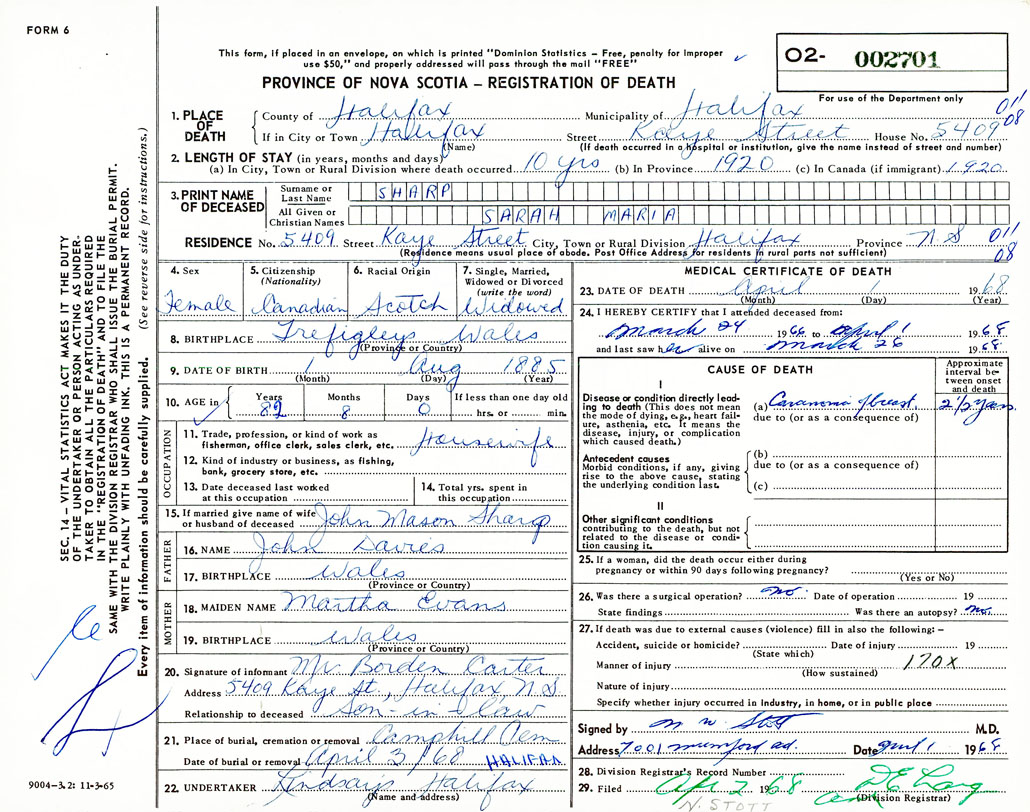 FORM 6
This form, if placed in an envelope, on which is printed "Dominion Statistics – Free, penalty for improper
use $50," and properly addressed will pass through the mail "FREE"
O2- 002701
PROVINCE OF NOVA SCOTIA – REGISTRATION OF DEATH
For use of the Department only
011
08
1. PLACE OF DEATH
County of Halifax Municipality of Halifax
If in City or Town Halifax Street Kaye Street House No. 5409
(Name) (If death occurred in a hospital or institution, give the name instead of street and number)
2. LENGTH OF STAY (in years, months and days)
(a) In City, Town or Rural Division where death occurred 10 yrs (b) In Province 1920 (c) In Canada (if immigrant) 1920
3. PRINT NAME OF DECEASED
Surname or Last Name SHARP
All Given or Christian Names SARAH MARIA
RESIDENCE No. 5409 Street Kaye Street City, Town or Rural Division Halifax Province N S
011
08
(Residence means usual place of abode. Post Office Address for residents in rural parts not sufficient)
4. Sex
Female
5. Citizenship
(Nationality)
Canadian
6. Racial Origin
Scotch
7. Single, Married,
Widowed or Divorced
(write the word)
Widowed
8. BIRTHPLACE Trefigleys Wales
(Province or Country)
9. DATE OF BIRTH 1 Aug 1885
(Month) (Day) (Year)
10. AGE in
Years Months Days If less than one day old
82 8 0 hrs. or min.
OCCUPATION
11. Trade, profession, or kind of work as
fisherman, office clerk, sales clerk, etc. Housewife
12. Kind of industry or business, as fishing,
bank, grocery store, etc.
13. Date deceased last worked
at this occupation
14. Total yrs. spent in
this occupation
15. If married give name of wife
or husband of deceased John Mason Sharp
FATHER
16. NAME John Davies
17. BIRTHPLACE Wales
(Province or Country)
MOTHER
18. MAIDEN NAME Martha Evans
19. BIRTHPLACE Wales
(Province or Country)
20. Signature of informant Mr Borden Carter
Address 5409 Kaye St., Halifax, N S
Relationship to deceased Son-in-law
21. Place of burial, cremation or removal Camphill Cem
Date of burial or removal April 3/68 HALIFAX
22. UNDERTAKER Lindsay's Halifax
(Name and address)
MEDICAL CERTIFICATE OF DEATH
23. DATE OF DEATH April 1 1968
(Month) (Day) (Year)
24. I HEREBY CERTIFY that I attended deceased from:
March 24 1966 to April 1 1968
and last saw her alive on March 26 1968
CAUSE OF DEATH
Approximate
interval be-
tween onset
and death
I
Disease or condition directly lead-
ing to death (This does not mean
the mode of dying, e.g., heart fail-
ure, asthenia, etc. It means the
disease, injury, or complication
which caused death.)
(a) Carcinoma of breast 2 1/2 years
due to (or as a consequence of)
Antecedent causes
Morbid conditions, if any, giving
rise to the above cause, stating
the underlying condition last.
(b)
due to (or as a consequence of)
(c)
II
Other significant conditions
contributing to the death, but not
related to the disease or condi-
tion causing it.
25. If a woman, did the death occur either during
pregnancy or within 90 days following pregnancy?
(Yes or No)
26. Was there a surgical operation? no. Date of operation 19
State findings Was there an autopsy? no.
27. If death was due to external causes (violence) fill in also the following: –
Accident, suicide or homicide? Date of injury 19
(State which)
Manner of injury 170X
(How sustained)
Nature of injury
Specify whether injury occurred in Industry, in home, or in public place
Signed by M W Stott M.D.
Address 7001 Mumford Rd. Date April 1 1968
28. Division Registrar's Record Number
29. Filed Apr 2 1968
(Division Registrar)
N. STOTT
SEC. 14 – VITAL STATISTICS ACT MAKES IT THE DUTY
OF THE UNDERTAKER OR PERSON ACTING AS UNDER-
TAKER TO OBTAIN ALL THE PARTICULARS REQUIRED
IN THE "REGISTRATION OF DEATH" AND TO FILE THE
SAME WITH THE DIVISION REGISTRAR WHO SHALL ISSUE THE BURIAL PERMIT.
WRITE PLAINLY WITH UNFADING INK. THIS IS A PERMANENT RECORD.
Every item of information should be carefully supplied. (See reverse side for instructions.)
9004-3.2: 11-3-65